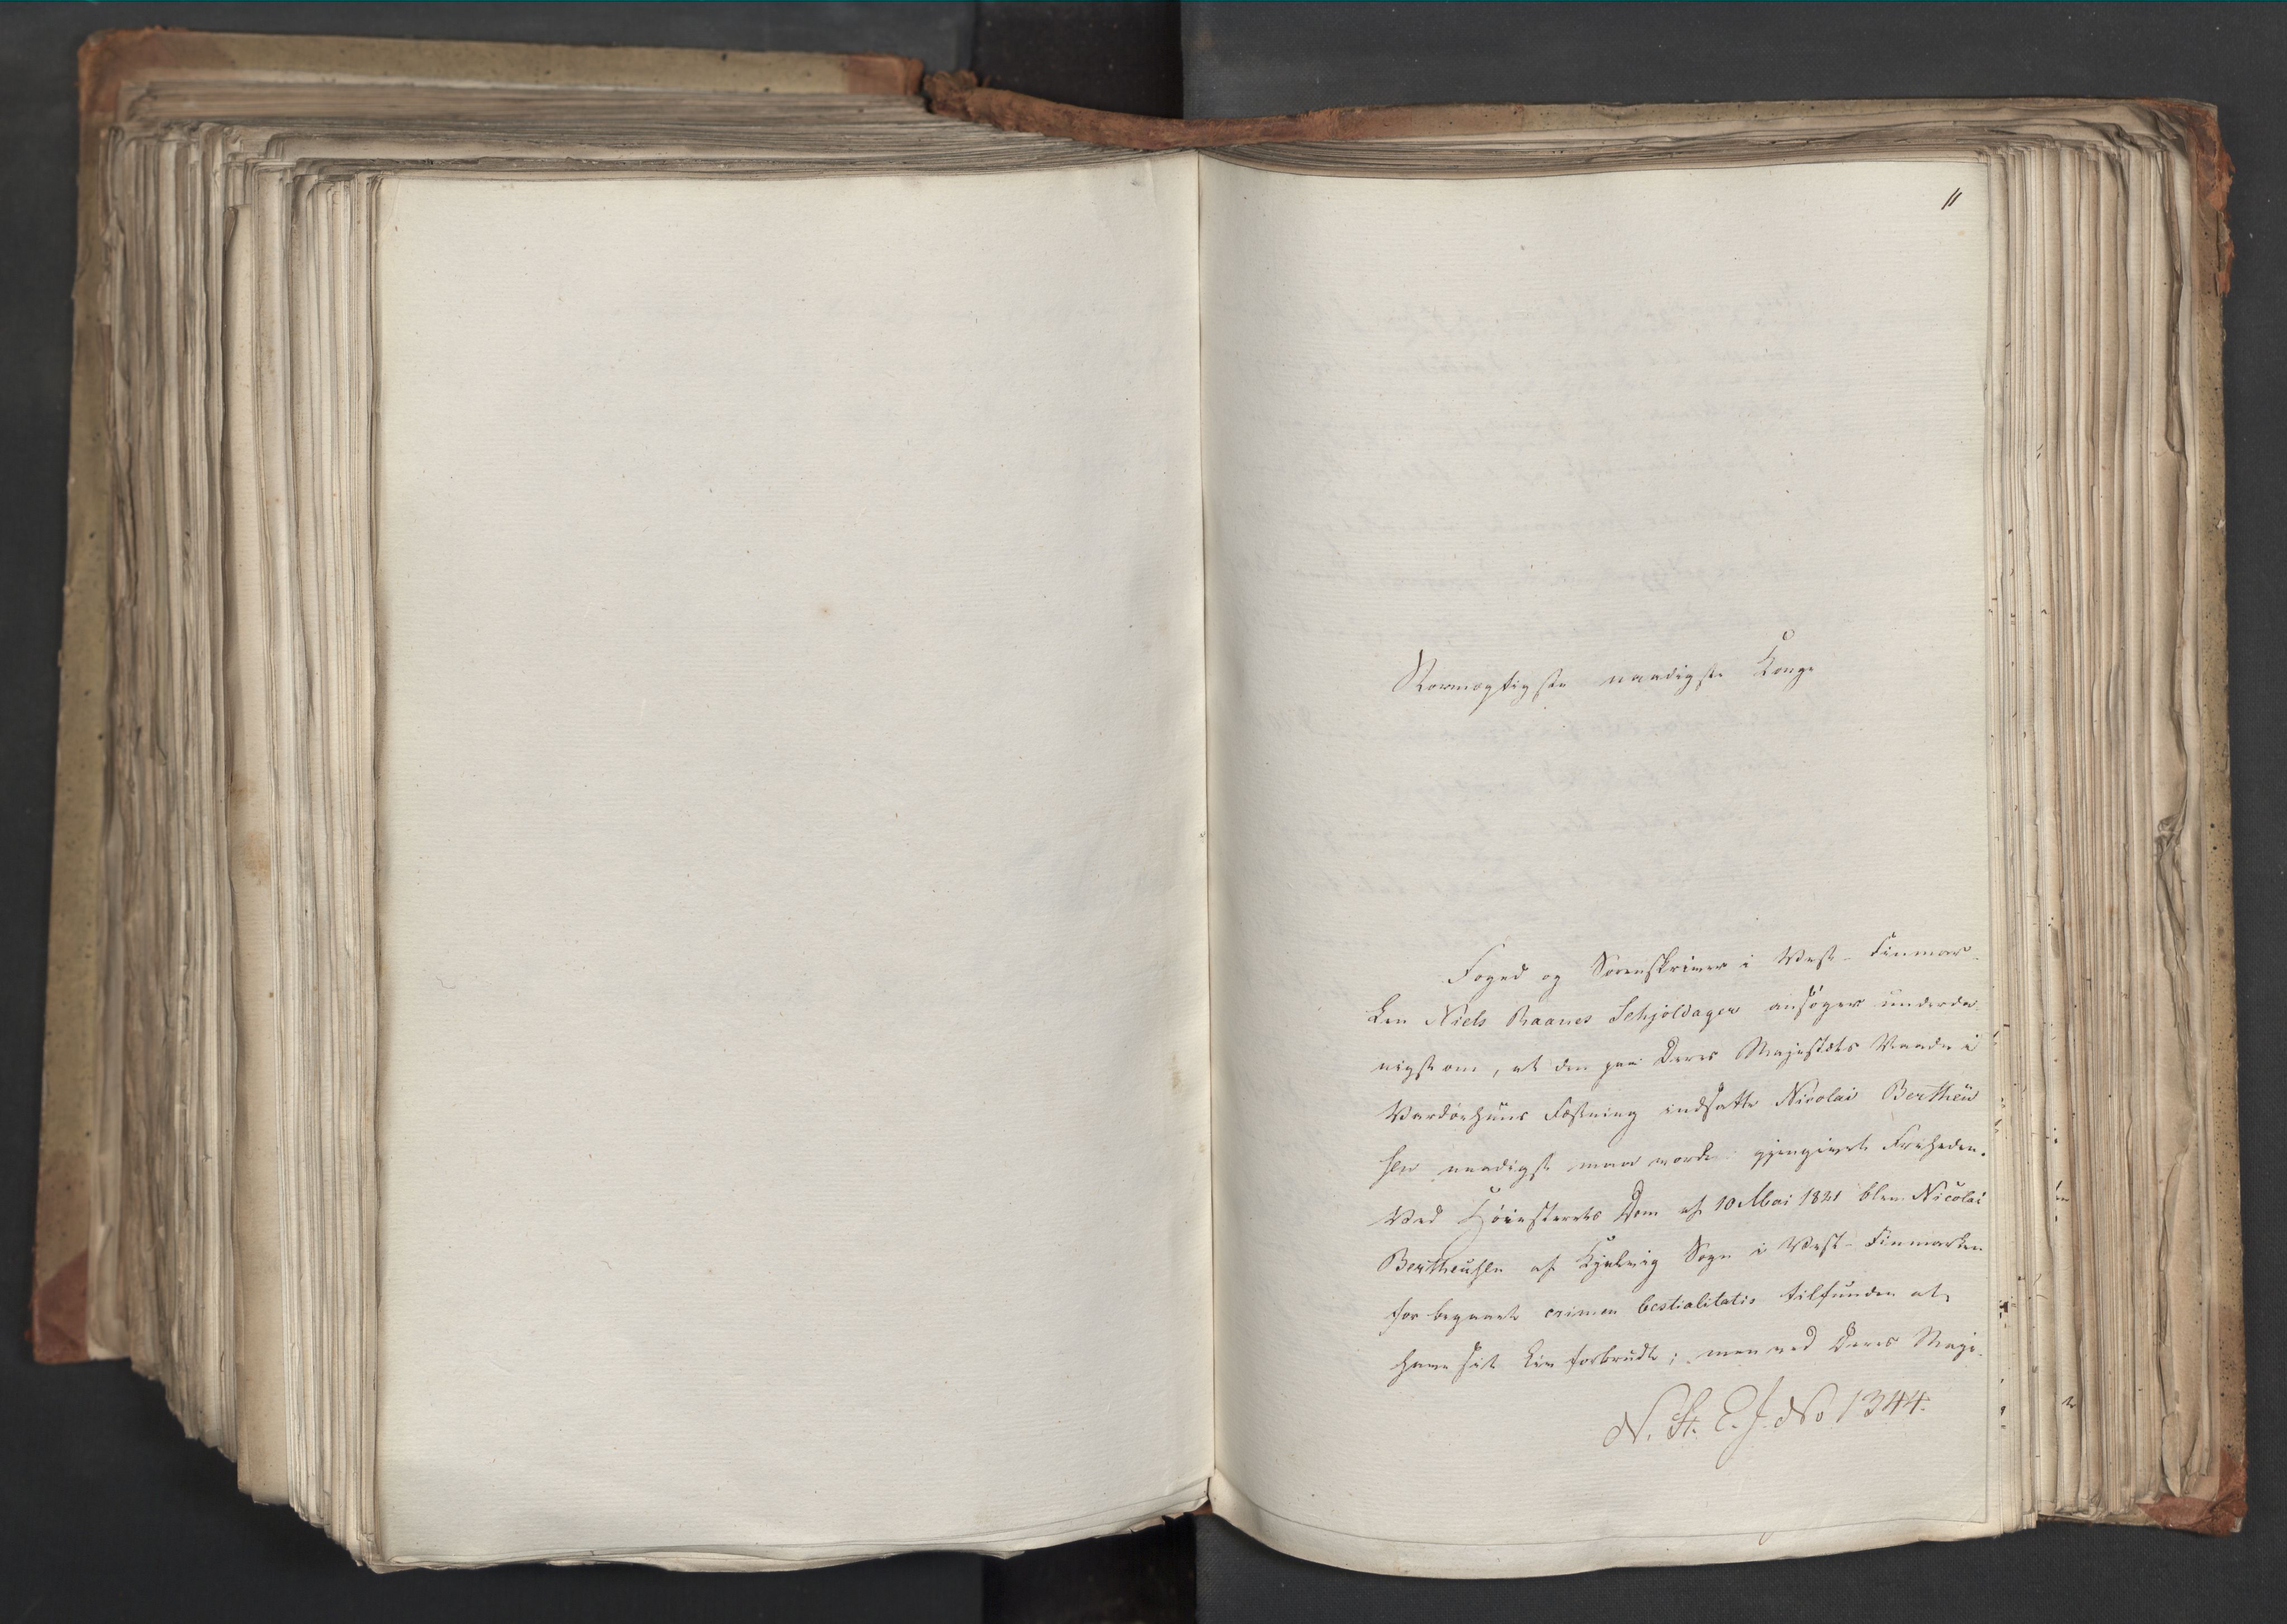 11
Stormægtigste naadigste Konge
Foged og Sorenskriver i Vest-Finmar-
ken Niels Raanes Schjoldager ansøger underda-
nigst om, at den paa Deres Majestæts Naade i
Vardøehuus Fæstning indsatte Nicolai Bertheü
sen naadigst maa worde gjengivet Friheden.
Ved Høiesterets Dom af 10 Mai 1821 blev Nicolai
Bertheüsen af Kjelvig Sogn i Vest-Finmarken
for begaaet crimen bestialitatis tilfunden at
have sit Liv forbrudt; men ved Deres Maje-
N. St. E. J. No 1344.